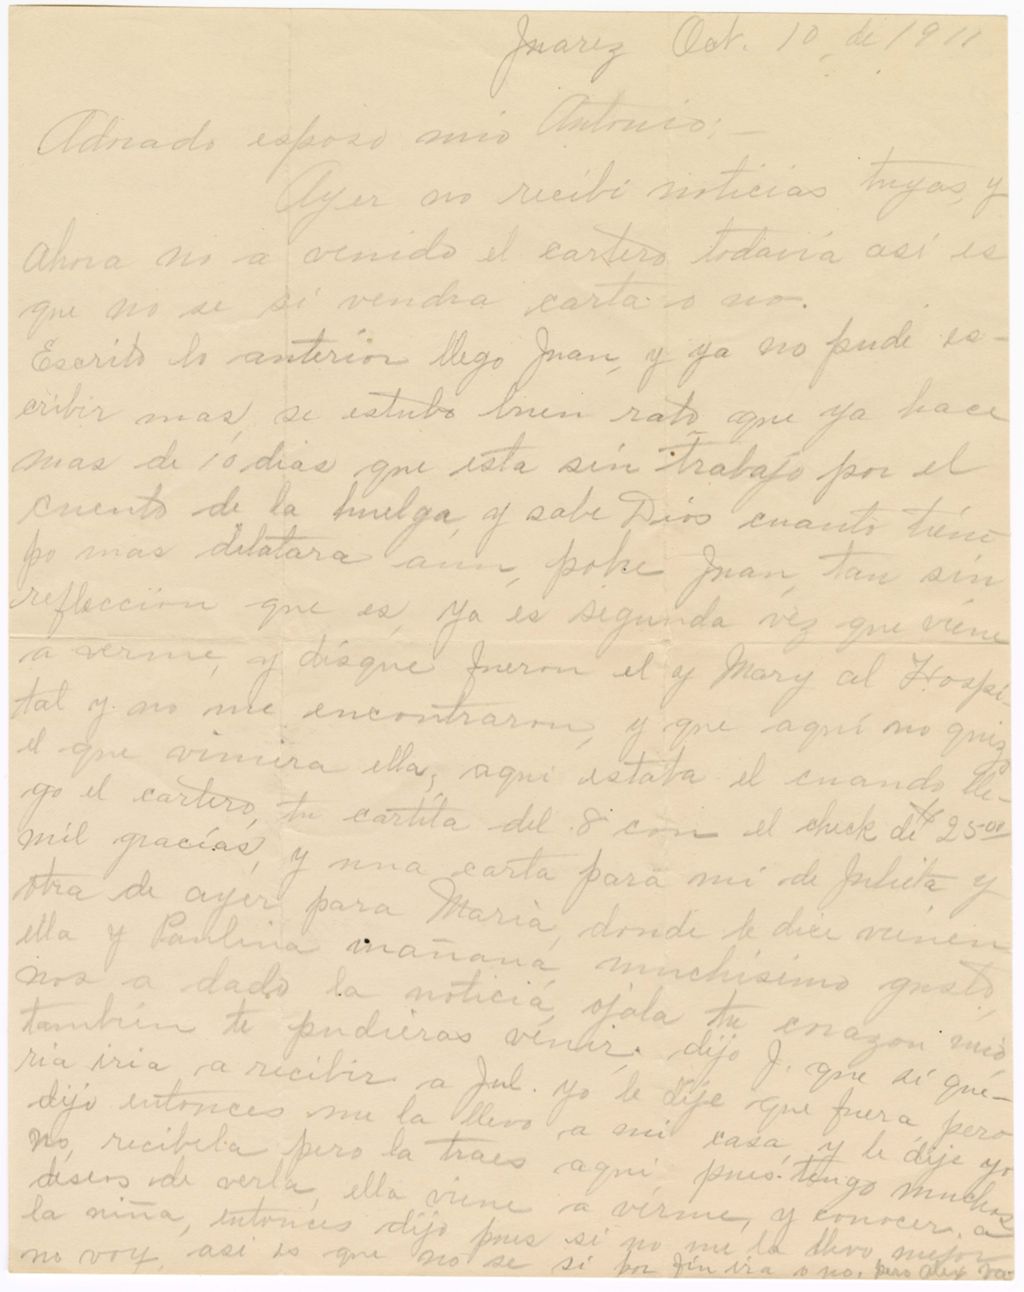 Juarez Oct. 10, de 1911
Adorado esposo mio Antonio;—
Ayer no recibi noticias tuyas, y
ahora no a venido el cartero todavia así es
que no se si vendra carta o no.
Escrito lo anterior llego Juan, y ya no pude es-
cribir mas, se estubo buen rato que ya hace
mas de 10 dias que esta sin trabajo por el
cuento de la huelga, y sabe Dios cuanto tiem-
po mas dilatara aun, pobre Juan, tan sin
refleccion que es, ya es segunda vez que viene
a verme, y disque fueron el y Mary al Hospi-
tal y no me encontraron, y que aqui no quiz
el que viniera ella; aqui estaba el cuando lle-
go el cartero, tu cartita del 8 con el check de $25.00
mil gracias, y una carta para mi de Julieta y
otra de ayer para Maria, donde le dice vienen
ella y Paulina mañana muchisimo gusto,
nos a dado la noticia, ojala tu corazon mio
tambien te pudieras venir, dijo J. que si que-
ria iria a recibir a Jul. yo le dije que fuera, pero
dijo entonces me la llevo a mi casa, y le dije yo
No, recibela pero la traes aqui pues tengo muchos
deseos de verla, ella viene a verme, y conocer a
la niña, entonces dijo pues si no me la llevo mejor
no voy, asi es que no se si por fin ira o no, pero